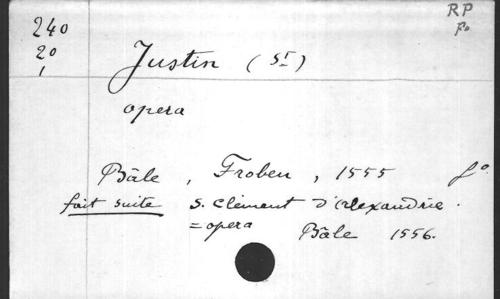 RP
fo
240
20
1
Justin (St)
opera
Bâle, Froben, 1555 fo
fait suite S. Clément d'Alexandrie.
=opera Bâle 1556.